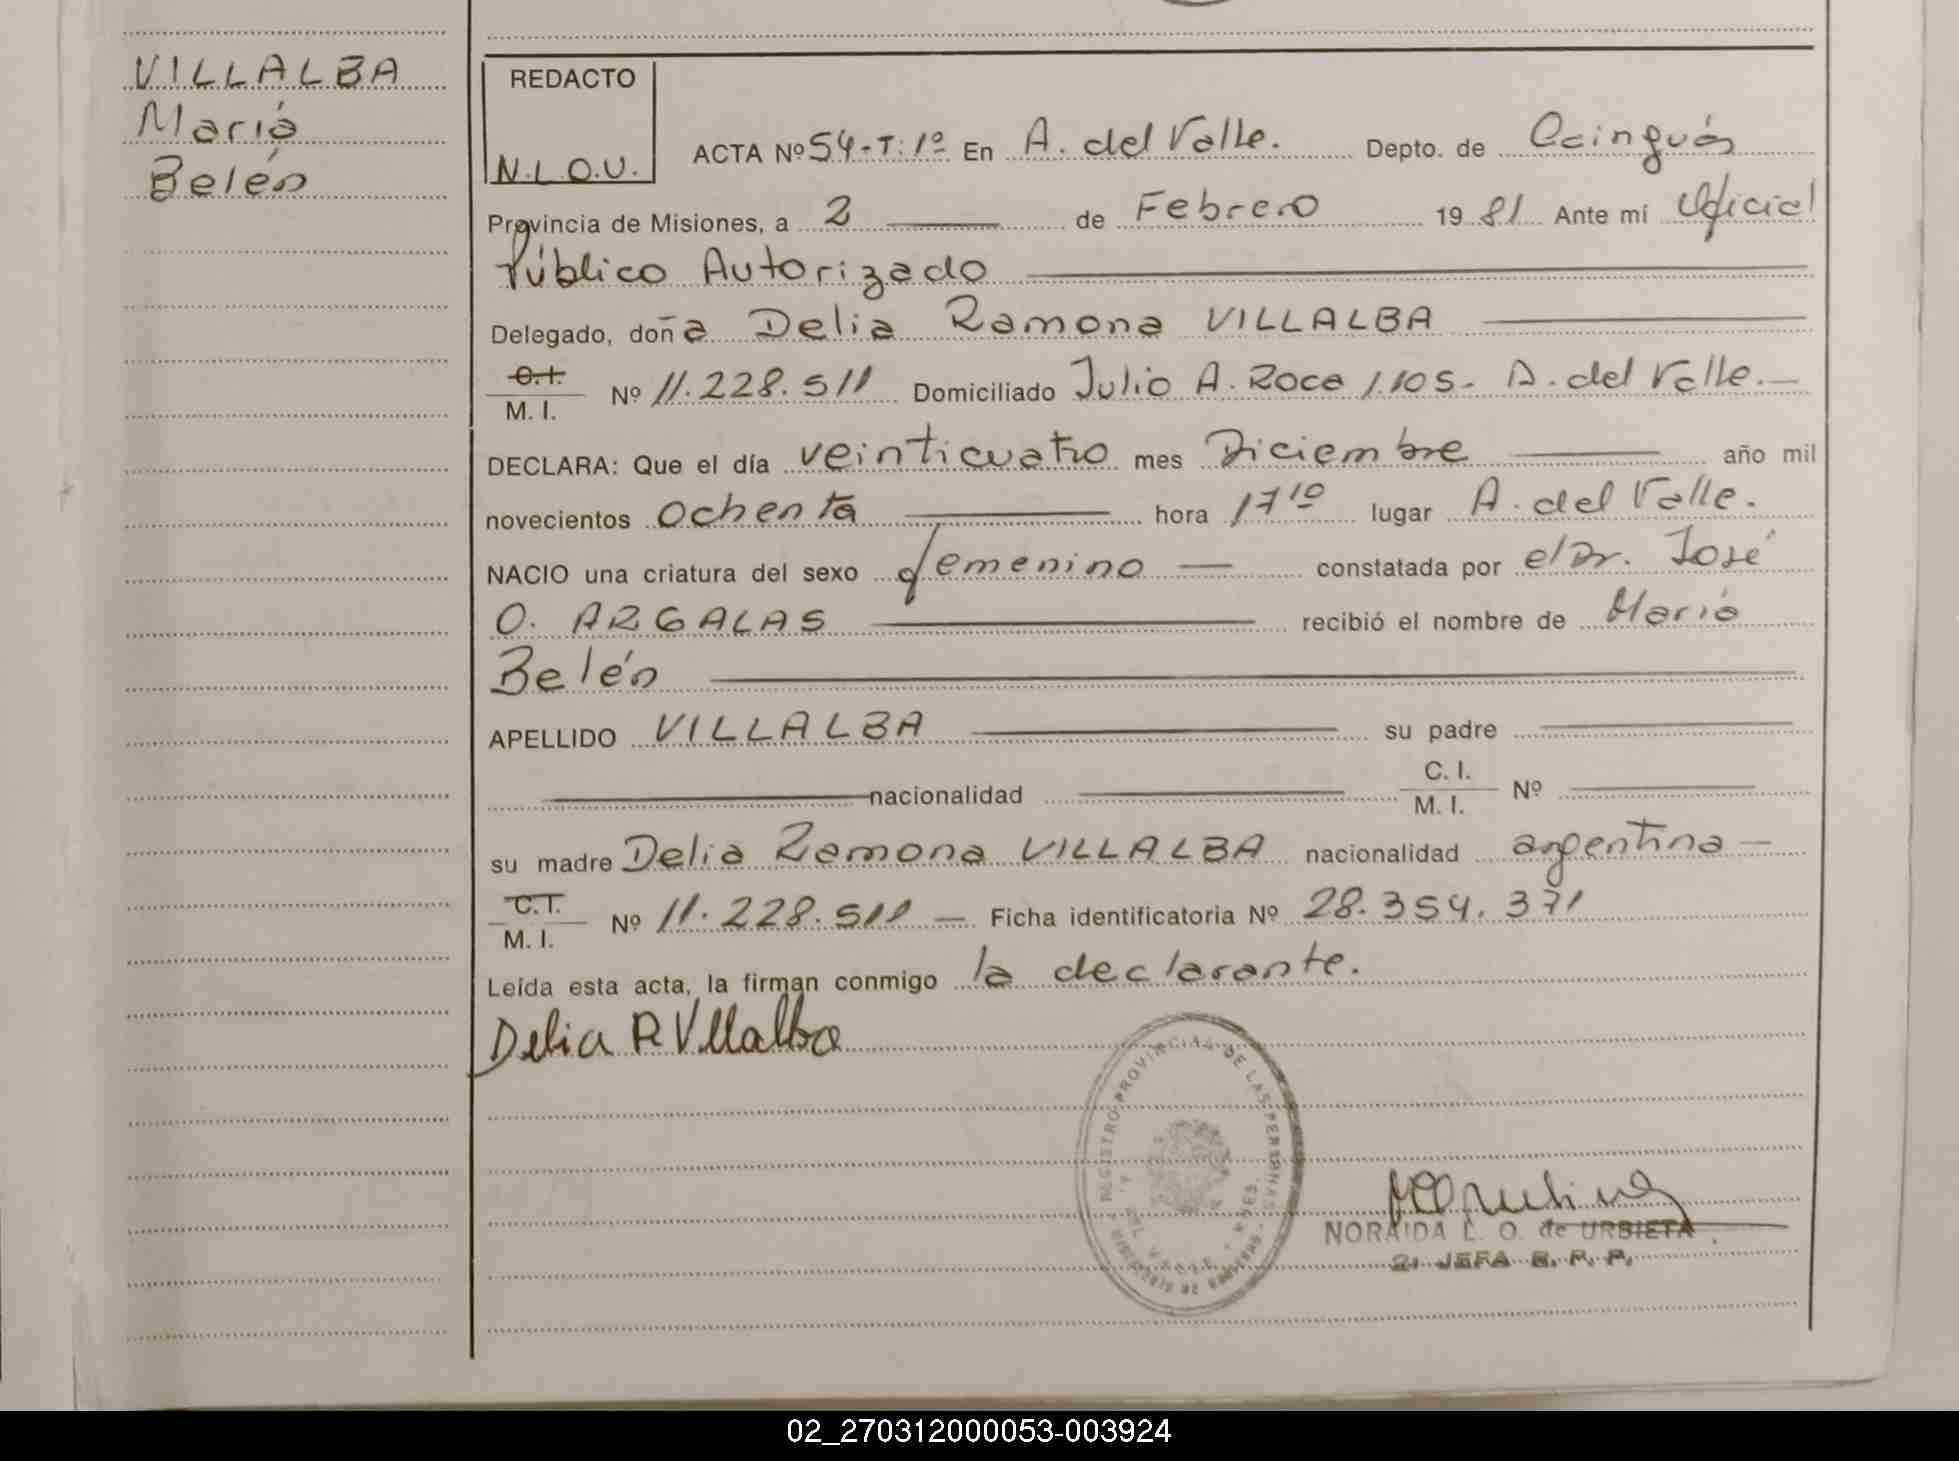 VILLALBA
María
Belén
REDACTO
N.L.O.U.
ACTA Nº 54-T:1º En A. del Valle. Depto. de Cainguás
Provincia de Misiones, a 2 de Febrero 1981 Ante mí Oficial
Público Autorizado
Delegado, doña Delia Ramona VILLALBA
C.I.
M. I. Nº 11.228.511 Domiciliado Julio A. Roca 1.105- A. del Valle.-
DECLARA: Que el día veinticuatro mes Diciembre año mil
novecientos ochenta hora 17 10 lugar A. del Valle.
NACIO una criatura del sexo femenino constatada por el Dr. José
O. ARGALAS recibió el nombre de María
Belén
APELLIDO VILLALBA su padre
nacionalidad C. I.
M. I. Nº
su madre Delia Ramona VILLALBA nacionalidad argentina -
C.I.
M. I. Nº 11.228.511 - Ficha identificatoria Nº 28.354.371
Leída esta acta, la firman conmigo la declarante.
Delia R Villalba
REGISTRO PROVINCIAL DE LAS PERSONAS
DEL VALLE
NORAIDA L. O. de URBIETA
2: JEFA R. P. P.
02_270312000053-003924